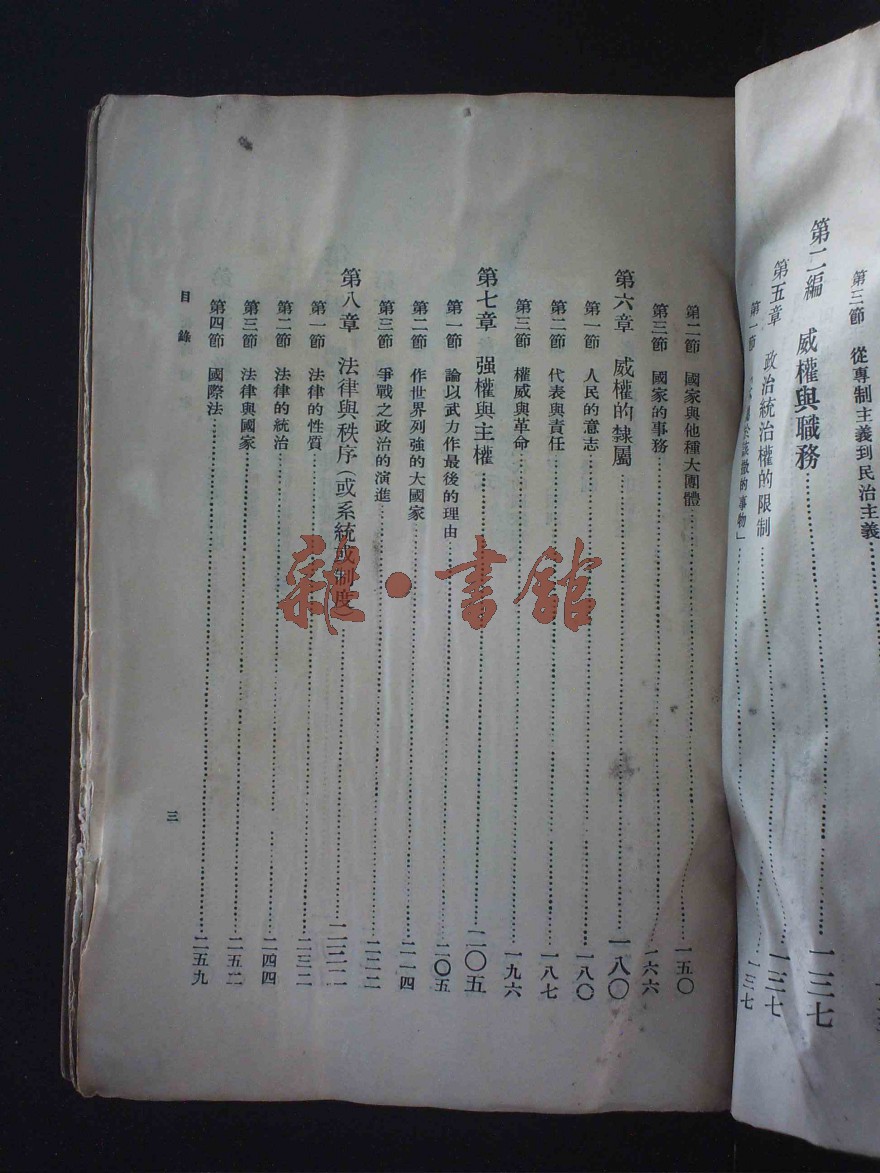 第三節 從專制主義到民治主義
第二編 威權與職務 一三七
第五章 政治統治權的限制 一三七
第一節 於該撒的事物」 一三七
第二節 國家與他種大團體 一五〇
第三節 國家的事務 一六六
第六章 威權的隸屬 一八〇
第一節 人民的意志 一八〇
第二節 代表與責任 一八七
第三節 權威與革命 一九六
第七章 强權與主權 二〇五
第一節 論以武力作最後的理由 二〇五
第二節 作世界列強的大國家 二一四
第三節 爭戰之政治的演進 二二二
第八章 法律與秩序(或系統或制度) 二三二
第一節 法律的性質 二三二
第二節 法律的統治 二四四
第三節 法律與國家 二五二
第四節 國際法 二五九
目錄
三
雜·書館